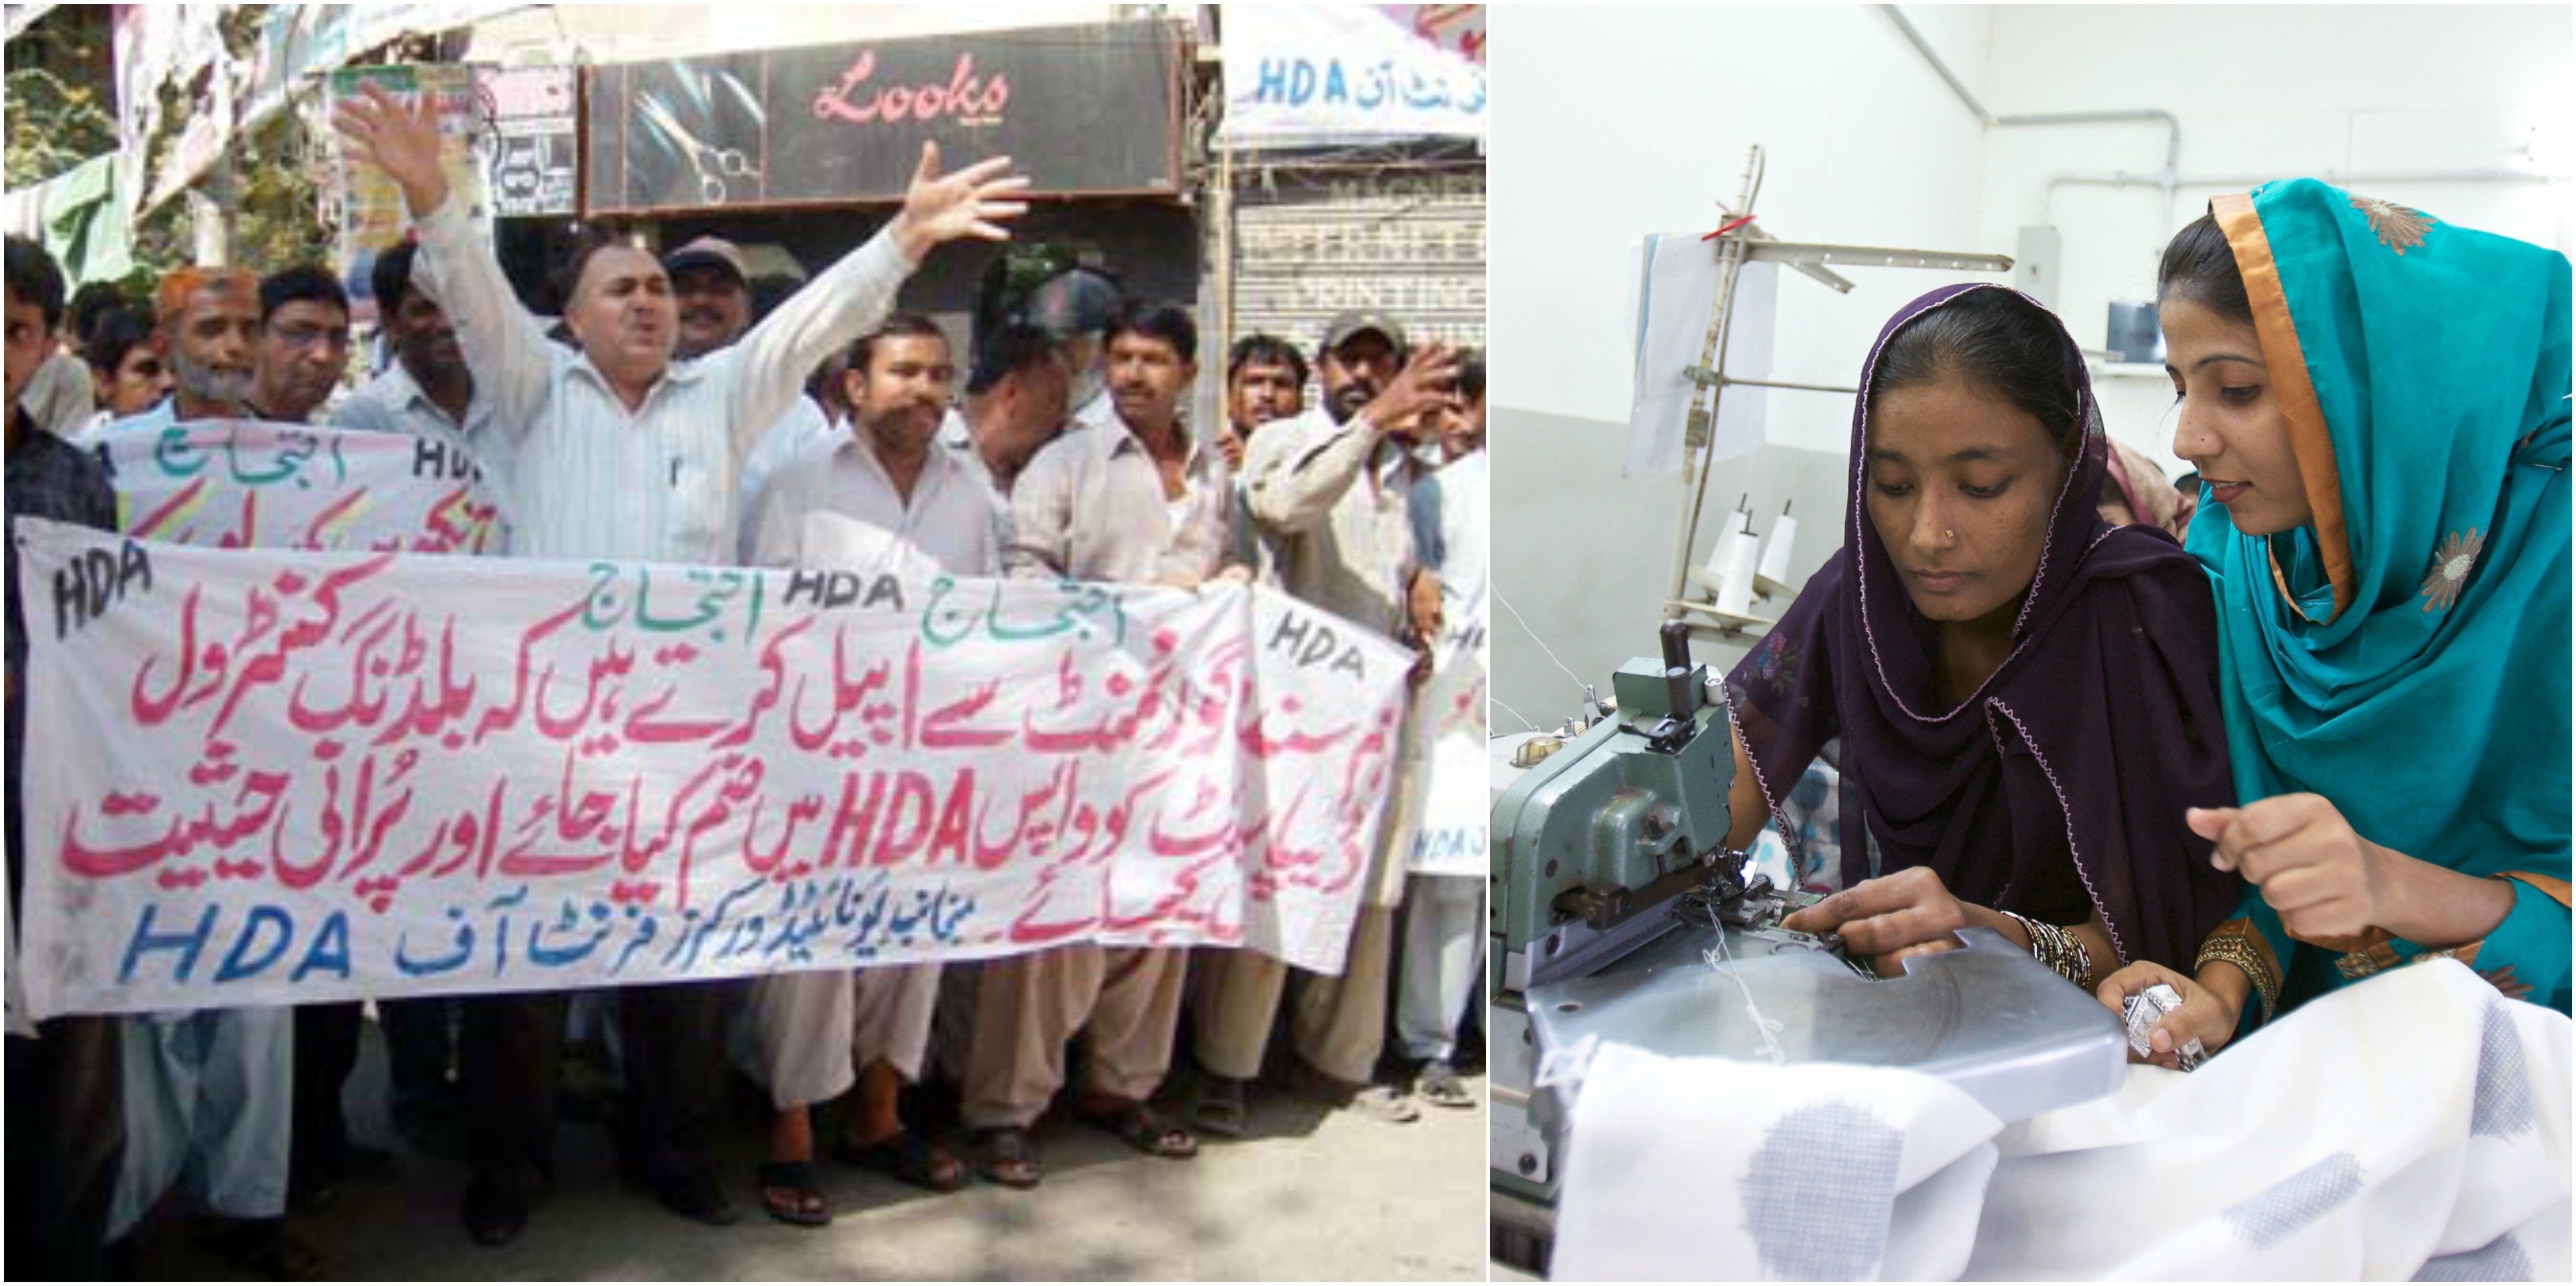 Looks
HDA فرنٹ آف
PRINTING
احتجاج HDA
HDA احتجاج HDA احتجاج HDA
ہم سندھ گورنمنٹ سے اپیل کرتے ہیں کہ بلڈنگ کنٹرول
ڈیپارٹمنٹ کو واپس HDA میں ضم کیا جائے اور پُرانی حیثیت
بحال کیجائے۔ منجانب یونائیٹڈ ورکرز فرنٹ آف HDA